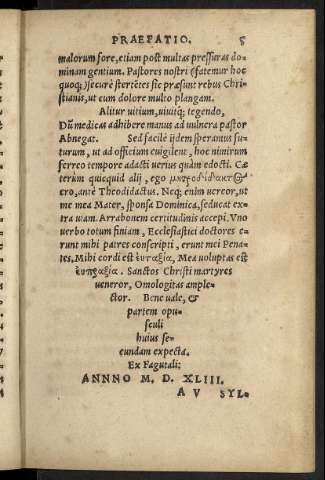 PRAEFATIO. 5
malorum fore, etiam post multas pressuras do-
minam gentium. Pastores nostri (fatemur hoc
quoq;) secure stertētes sic præsunt rebus Chri-
stianis, ut cum dolore multo plangam.
Alitur uitium, uiuitq; tegendo,
Dū medicas adhibere manus ad uulnera pastor
Abnegat. Sed facile ijdem speramus fu-
turum, ut ad officium euigilent, hoc nimirum
ferreo tempore adacti uerius quàm edocti. Cæ
terùm quicquid alij, ego
ero, antè Theodidactus. Neq; enim uereor, ut
me mea Mater, sponsa Dominica, seducat ex-
tra uiam. Arrabonem certitudinis accepi. Vno
uerbo totum finiam, Ecclesiastici doctores e-
runt mihi patres conscripti, erunt mei Pena-
tes, Mihi cordi est ἐυταξία, Mea uoluptas est
ἐυπραξία. Sanctos Christi martyres
ueneror, Omologitas ample-
ctor. Bene uale, &
partem opu-
sculi
huius se-
cundam expecta.
Ex Fagutali:
ANNNO M. D. XLIII.
A V SYL-